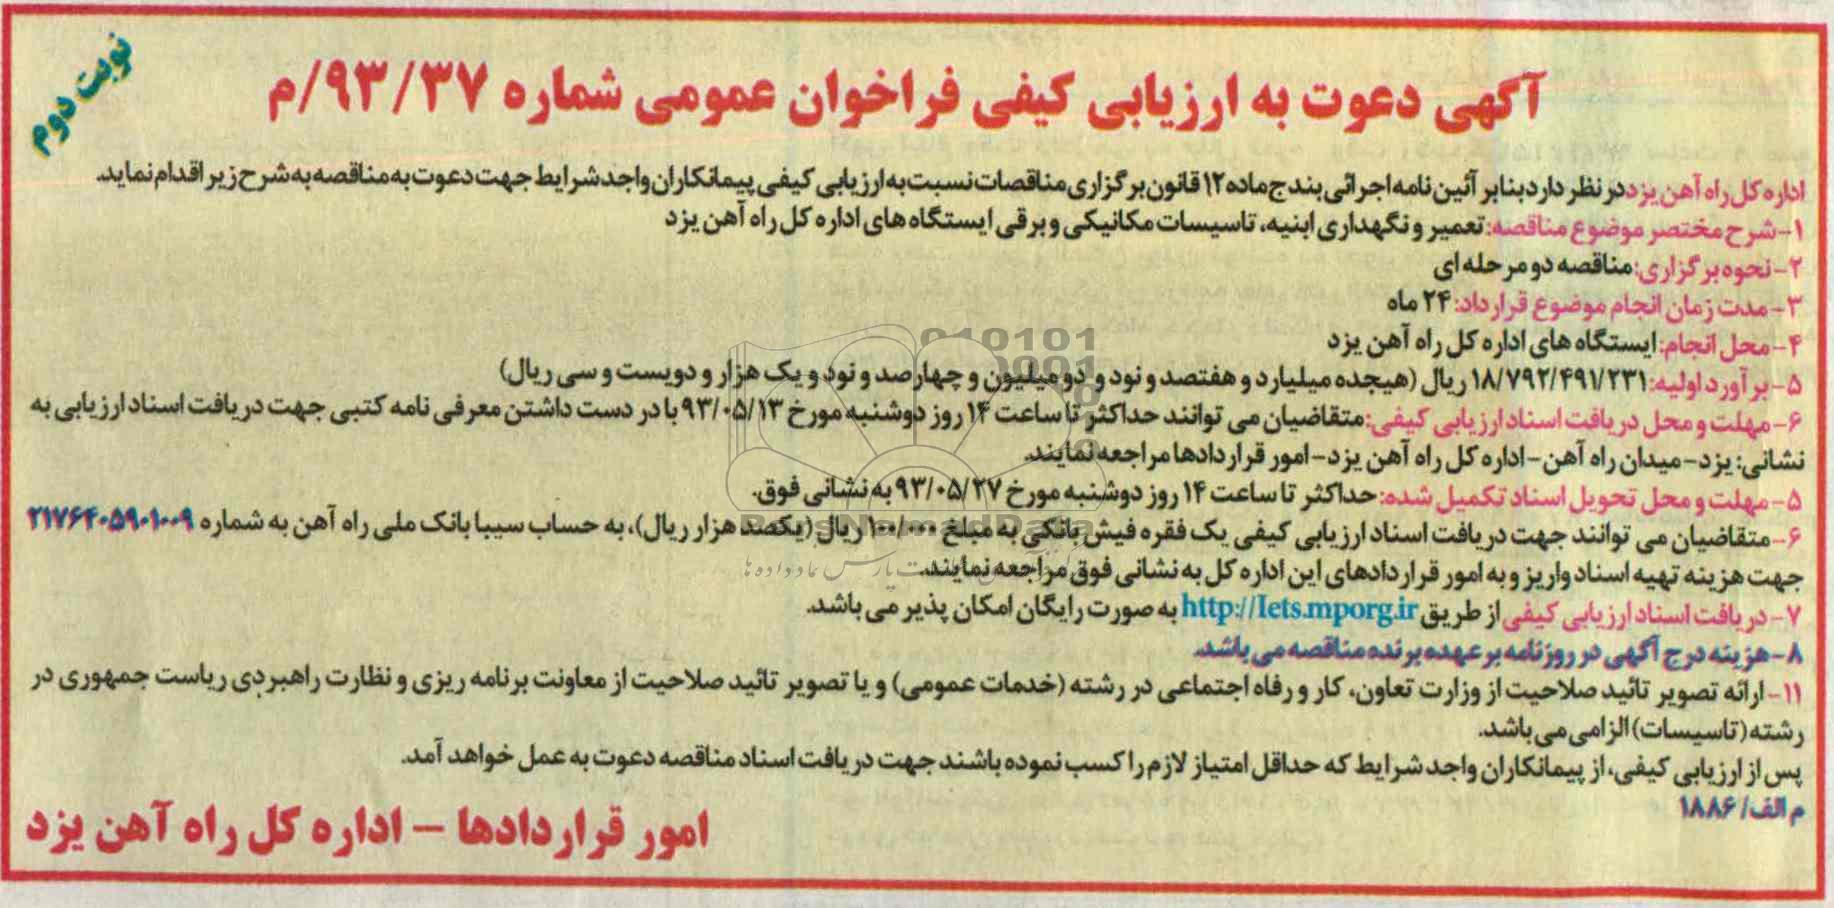 نوبت دوم
آگهی دعوت به ارزیابی کیفی فراخوان عمومی شماره ۹۳/۳۷/م
اداره کل راه آهن یزد در نظر دارد بنابر آئین نامه اجرائی بند ج ماده ۱۲ قانون برگزاری مناقصات نسبت به ارزیابی کیفی پیمانکاران واجد شرایط جهت دعوت به مناقصه به شرح زیر اقدام نماید.
۱- شرح مختصر موضوع مناقصه: تعمیر و نگهداری ابنیه، تاسیسات مکانیکی و برقی ایستگاه های اداره کل راه آهن یزد
۲- نحوه برگزاری: مناقصه دو مرحله ای
۳- مدت زمان انجام موضوع قرارداد: ۲۴ ماه
۴- محل انجام: ایستگاه های اداره کل راه آهن یزد
۵- برآورد اولیه: ۱۸/۷۹۲/۴۹۱/۲۳۱ ریال (هیجده میلیارد و هفتصد و نود و دو میلیون و چهارصد و نود و یک هزار و دویست و سی ریال)
۶- مهلت و محل دریافت اسناد ارزیابی کیفی: متقاضیان می توانند حداکثر تا ساعت ۱۴ روز دوشنبه مورخ ۹۳/۰۵/۱۳ با در دست داشتن معرفی نامه کتبی جهت دریافت اسناد ارزیابی به
نشانی: یزد - میدان راه آهن - اداره کل راه آهن یزد - امور قراردادها مراجعه نمایند.
۵- مهلت و محل تحویل اسناد تکمیل شده: حداکثر تا ساعت ۱۴ روز دوشنبه مورخ ۹۳/۰۵/۲۷ به نشانی فوق.
۶- متقاضیان می توانند جهت دریافت اسناد ارزیابی کیفی یک فقره فیش بانکی به مبلغ ۱۰۰/۰۰۰ ریال (یکصد هزار ریال)، به حساب سیبا بانک ملی راه آهن به شماره ۲۱۷۶۴۰۵۹۰۱۰۰۹
جهت هزینه تهیه اسناد واریز و به امور قراردادهای این اداره کل به نشانی فوق مراجعه نمایند.
۷- دریافت اسناد ارزیابی کیفی از طریق http://Iets.mporg.ir به صورت رایگان امکان پذیر می باشد.
۸- هزینه درج آگهی در روزنامه بر عهده برنده مناقصه می باشد.
۱۱- ارائه تصویر تائید صلاحیت از وزارت تعاون، کار و رفاه اجتماعی در رشته (خدمات عمومی) و یا تصویر تائید صلاحیت از معاونت برنامه ریزی و نظارت راهبردی ریاست جمهوری در
رشته (تاسیسات) الزامی می باشد.
پس از ارزیابی کیفی، از پیمانکاران واجد شرایط که حداقل امتیاز لازم را کسب نموده باشند جهت دریافت اسناد مناقصه دعوت به عمل خواهد آمد.
م الف/ ۱۸۸۶
امور قراردادها - اداره کل راه آهن یزد